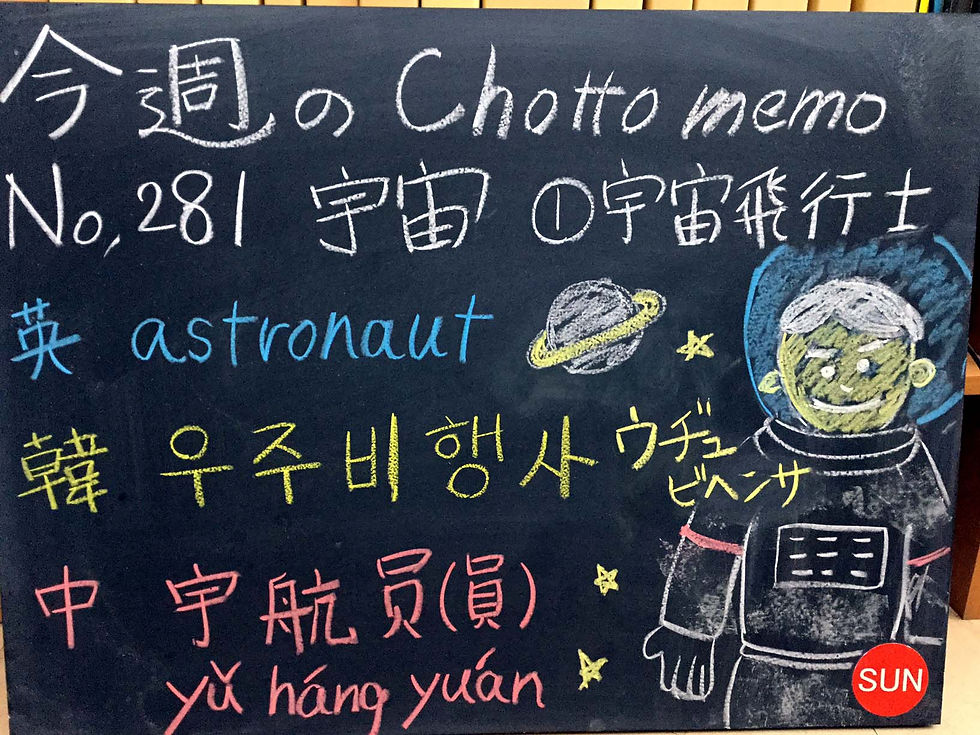 今週の Chotto memo
No,281 宇宙 ①宇宙飛行士
英 astronaut
韓 우주비행사 ウヂュ
ビヘンサ
中 宇航员(員)
yǔ háng yuán
SUN